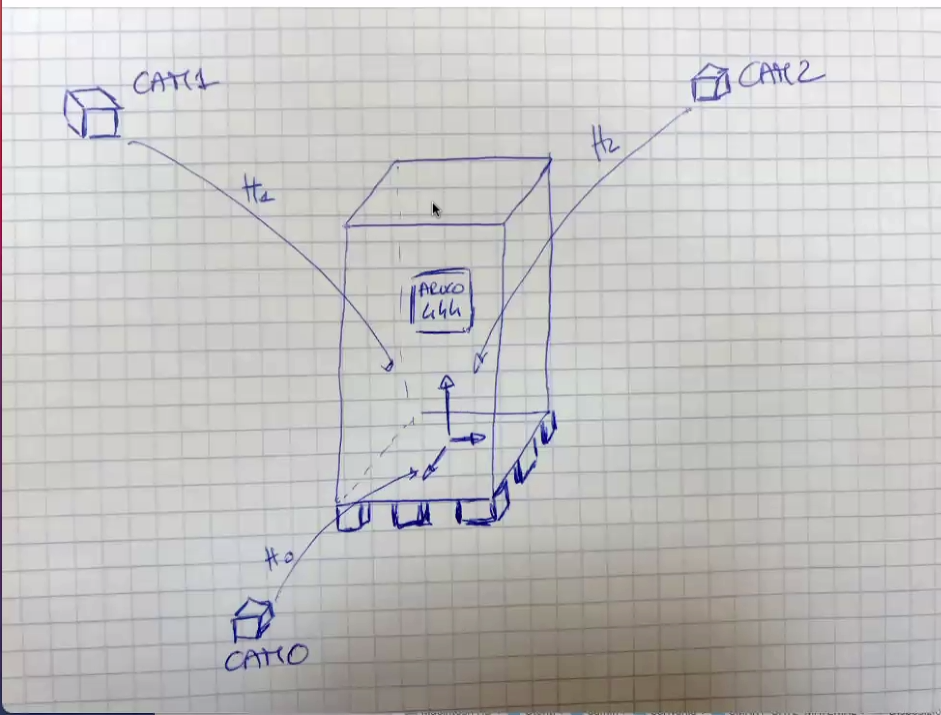 CAM1
CAM2
H2
H1
ARUCO
444
H0
CAM0